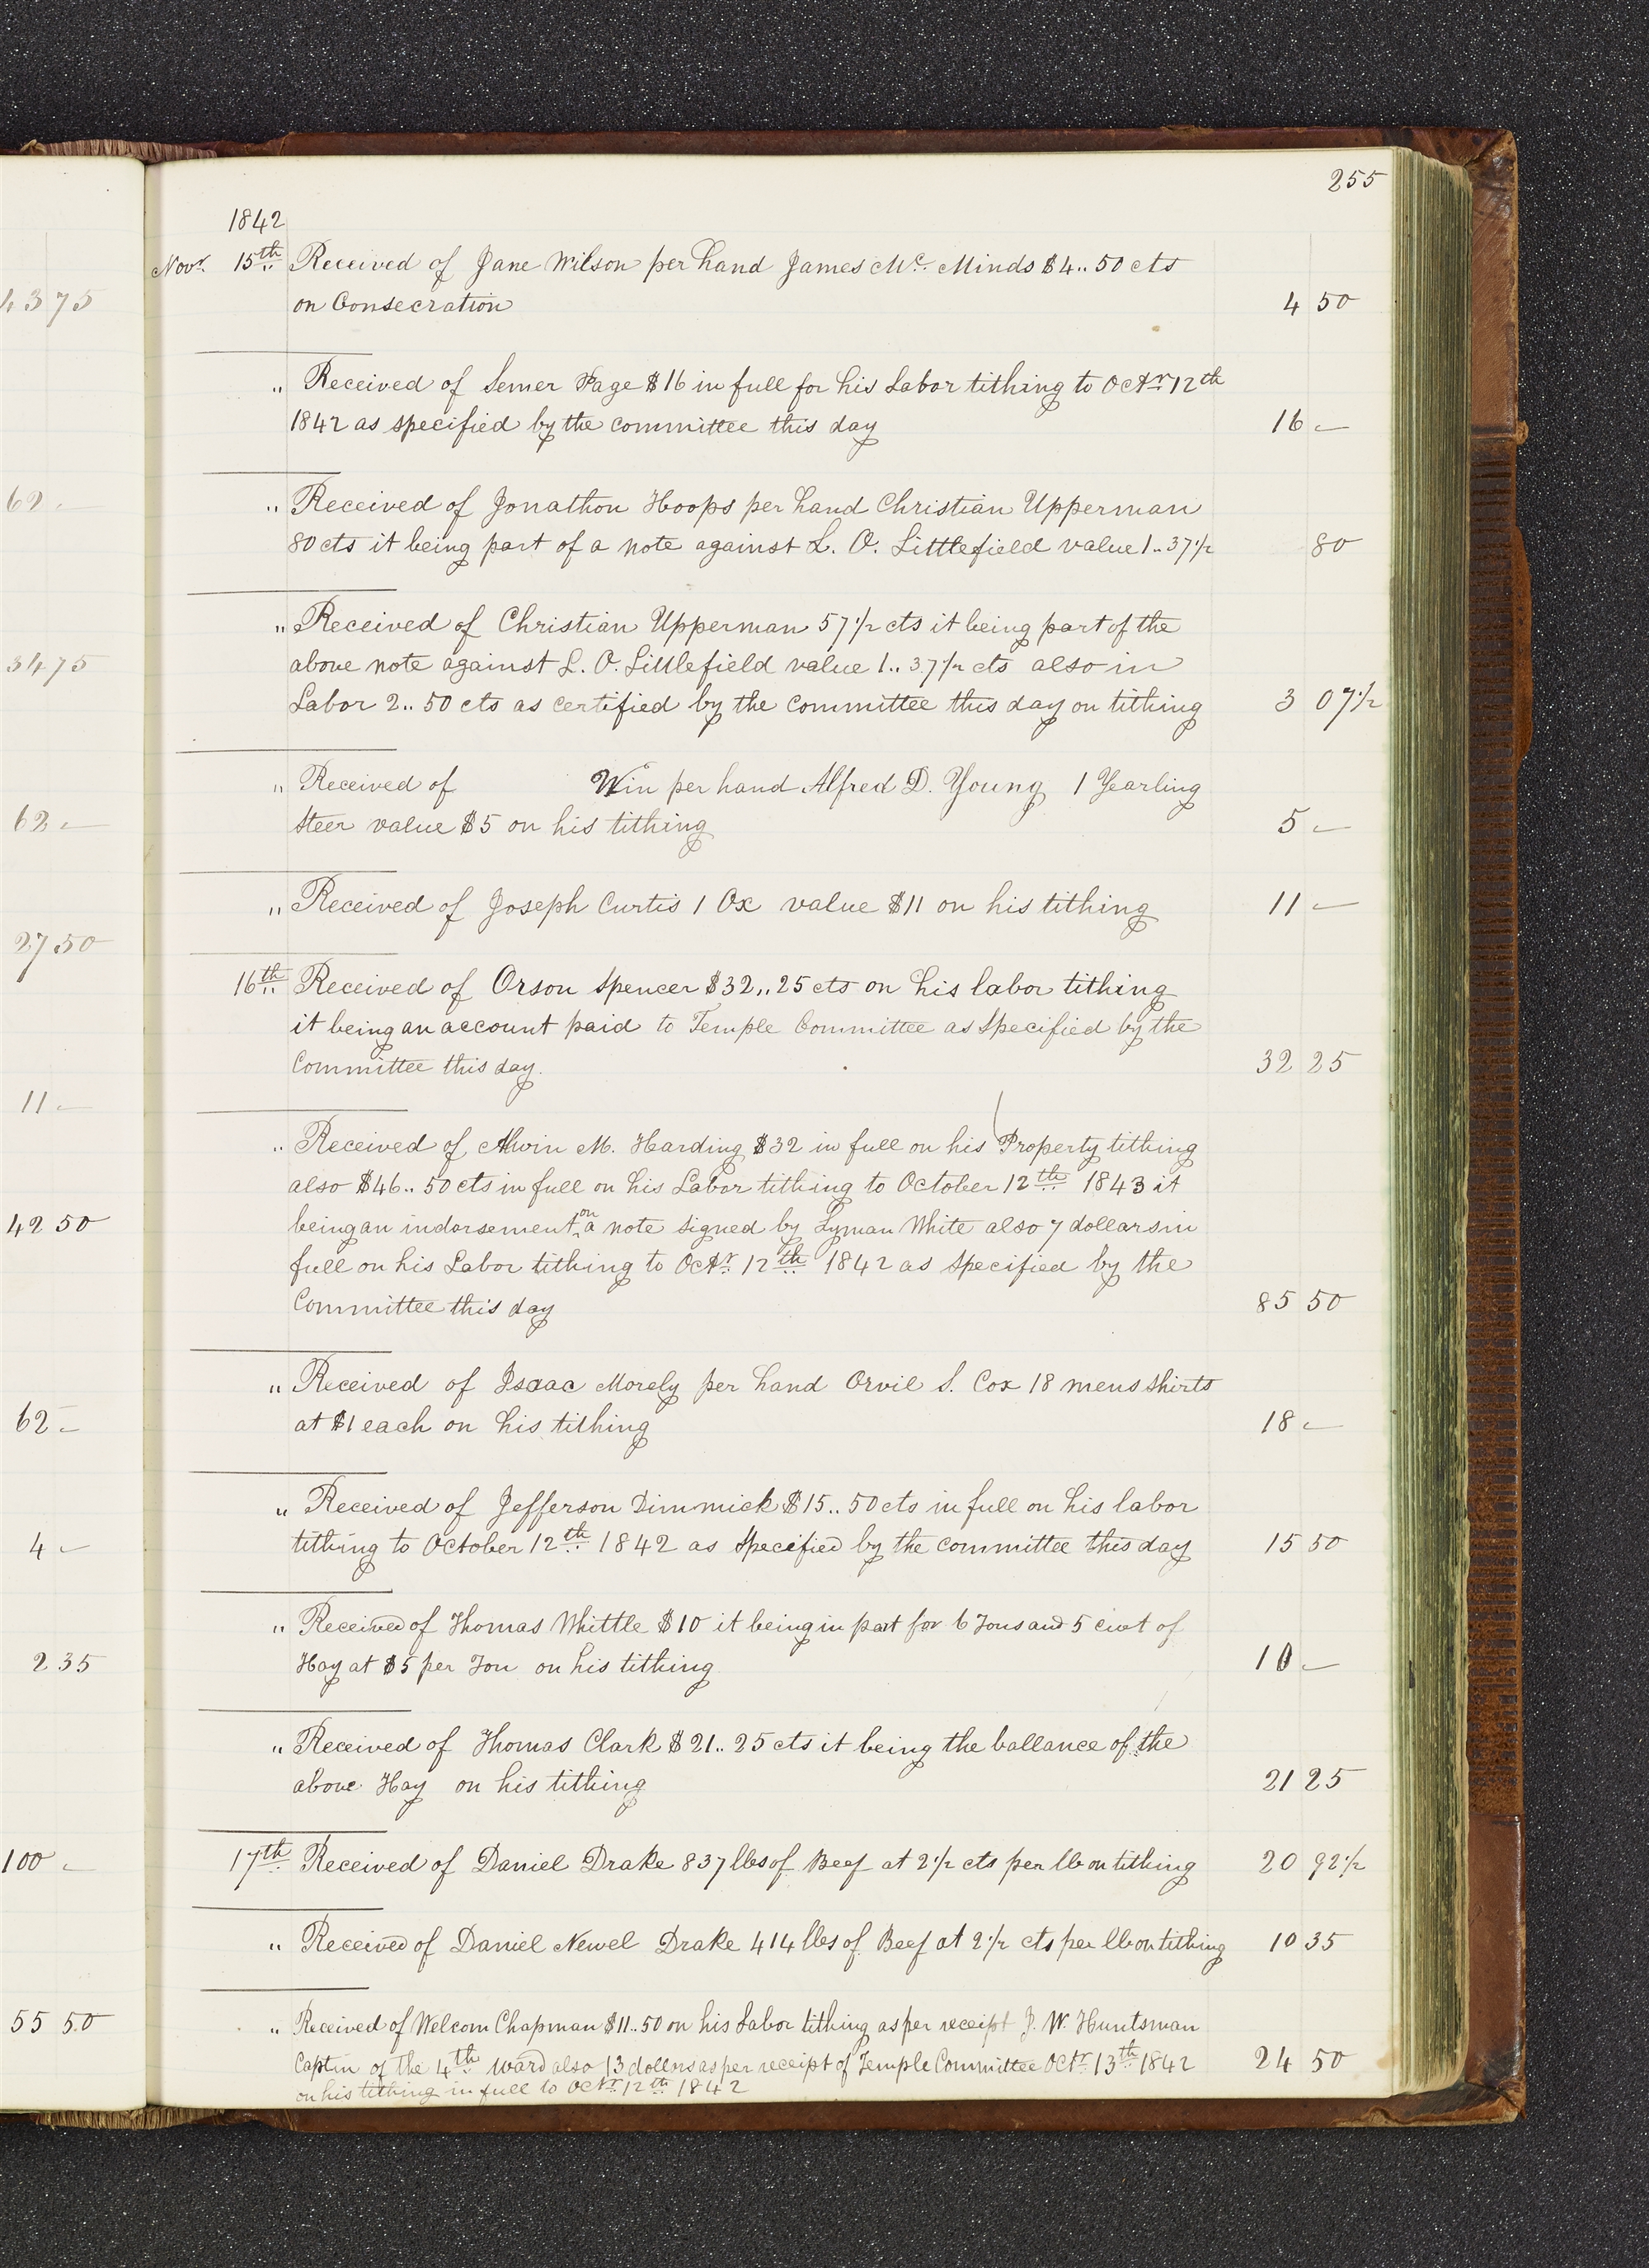 255
1842
Novr. 15th Received of Jane Wilson per hand James Mc. Minds $4..50 cts
on Consecration 4 50
" Received of Semer Page $16 in full for his Labor tithing to Octr 12th
1842 as specified by the committee this day 16 —
" Received of Jonathon Hoops per hand Christian Upperman
80 cts it being part of a note against L. O. Littlefield value 1..37 1/2 80
" Received of Christian Upperman 57 1/2 cts it being part of the
above note against L. O. Littlefield value 1..37 1/2 cts also in
Labor 2..50 cts as certified by the committee this day on tithing 3 07 1/2
" Received of Win per hand Alfred D. Young 1 Yearling
steer value $5 on his tithing 5 —
" Received of Joseph Curtis 1 Ox value $11 on his tithing 11 —
16th Received of Orson Spencer $32..25 cts on his labor tithing
it being an account paid to Temple Committee as specified by the
Committee this day. 32 25
" Received of Alwin M. Harding $32 in full on his Property tithing
also $46..50 cts in full on his Labor tithing to October 12th 1843 it
being an indorsement on a note signed by Lyman White also 7 dollars in
full on his Labor tithing to Octr. 12th 1842 as specified by the
Committee this day 85 50
" Received of Isaac Morely per hand Orvil S. Cox 18 mens shirts
at $1 each on his tithing 18 —
" Received of Jefferson Dimmick $15..50 cts in full on his labor
tithing to October 12th 1842 as specified by the committee this day 15 50
" Received of Thomas Whittle $10 it being in part for 6 Tons and 5 cwt of
Hay at $5 per Ton on his tithing 10 —
" Received of Thomas Clark $21..25 cts it being the ballance of the
above Hay on his tithing 21 25
17th Received of Daniel Drake 837 lbs of Beef at 2 1/2 cts per lb on tithing 20 92 1/2
" Received of Daniel Newel Drake 414 lbs of Beef at 2 1/2 cts per lb on tithing 10 35
" Received of Welcom Chapman $11..50 on his Labor tithing as per receipt J. W. Huntsman
Captin of the 4th ward also 13 dollars as per receipt of Temple Committee Octr 13th 1842 24 50
on his tithing in full to Octr 12th 1842
43 75
62 —
34 75
62 —
27 50
11 —
42 50
62 —
4 —
2 35
100 —
55 50